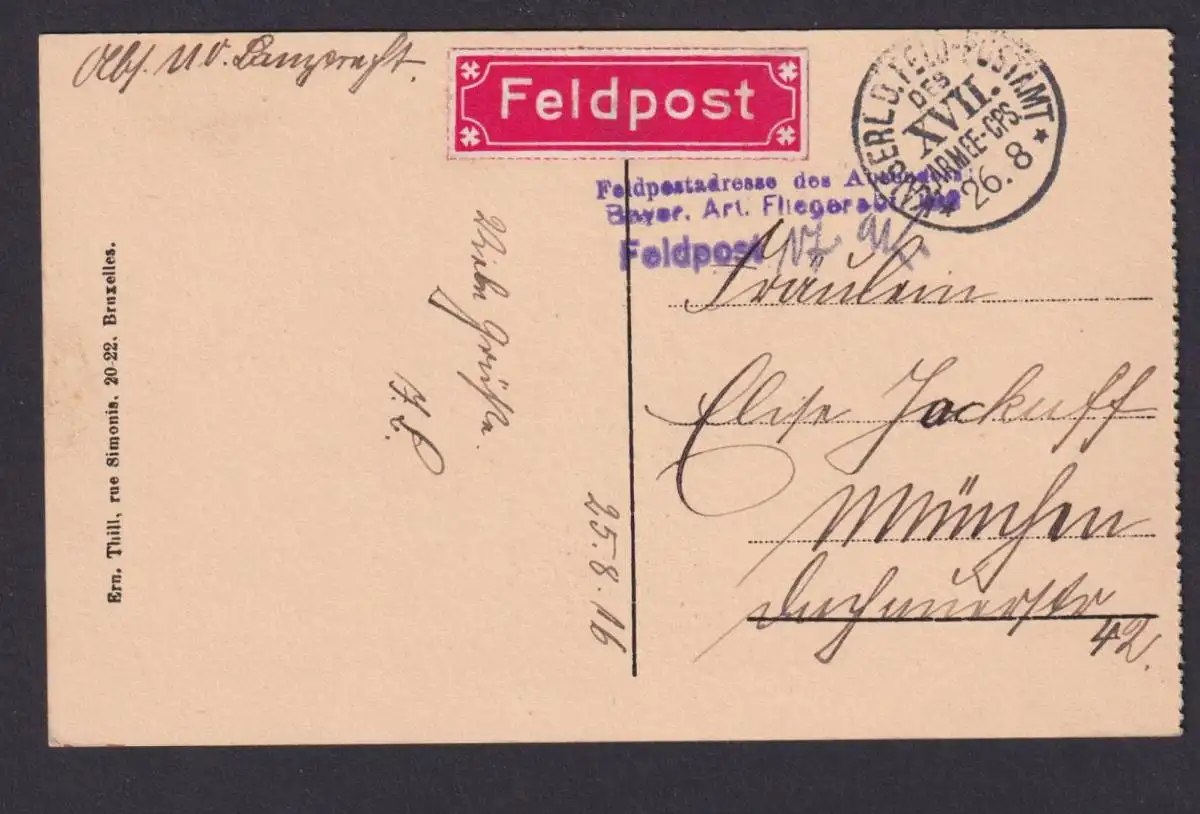 Abs. U. O.
Feldpost
KGL. PR.
FELD-POSTAMT
DES
XVII.
ARMEE-CPS.
26. 8
Feldpostadresse des
Bayer. Art. Fliegerabt.
Feldpost
Fräulein
Elise Jackuff
München
Dachauerstr
42.
Viele Grüße.
25. 8. 16
Ern. Thill, rue Simonis, 20-22, Bruxelles.